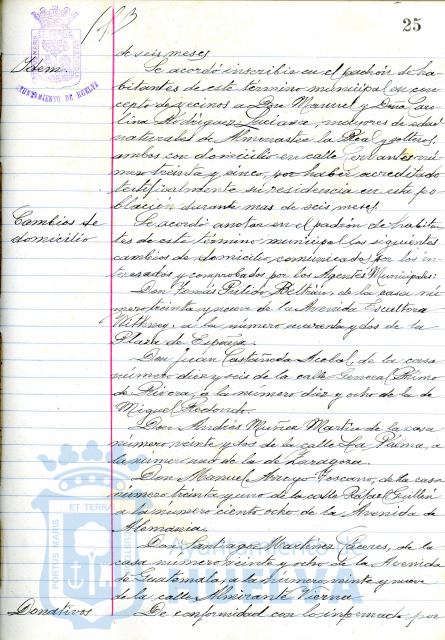 25
de seis meses
Idem.
Se acordó inscribir en el padrón de ha-
bitantes de este término municipal en con-
AYUNTAMIENTO DE HUELVA
cepto de vecinos a Don Manuel y Doña Ca-
lina Rodríguez Luciana, mayores de edad
naturales de Almonaster la Real y solteros,
ambos con domicilio en calle Cervantes nú-
mero treinta y cinco, por haber acreditado
testificalmente su residencia en esta po-
blación durante mas de seis meses.
Cambios de
domicilio
Se acordó anotar en el padrón de habitan-
tes de este término municipal los siguientes
cambios de domicilio, comunicados por los in-
teresados y comprobados por los Agentes Municipales:
Don Tomás Pulido Beltrán, de la casa nú-
mero treinta y nueve de la Avenida Escultora
Withney, a la número cuarenta y dos de la
Plaza de España.
Don Juan Castañeda, de la casa
número diez y seis de la calle General Primo
de Rivera, a la número diez y ocho de la de
Miguel Redondo.
Don Andrés Muñoz Martín de la casa
número veinte y dos de la calle La Palma, a
la número uno de la de Zaragoza.
Don Manuel Arroyo Toscano, de la casa
número treinta y uno de la calle Rafael Guillén
a la número ciento ocho de la Avenida de
Alemania.
Don Santiago Martínez Cáceres, de la
casa número veinte y ocho de la Avenida
de Guatemala, a la número veinte y nueve
de la calle Almirante Vierna
Donativos
De conformidad con lo informado por
PORTUS MARIS ET TERRAE
Ayuntamiento de
HUELVA